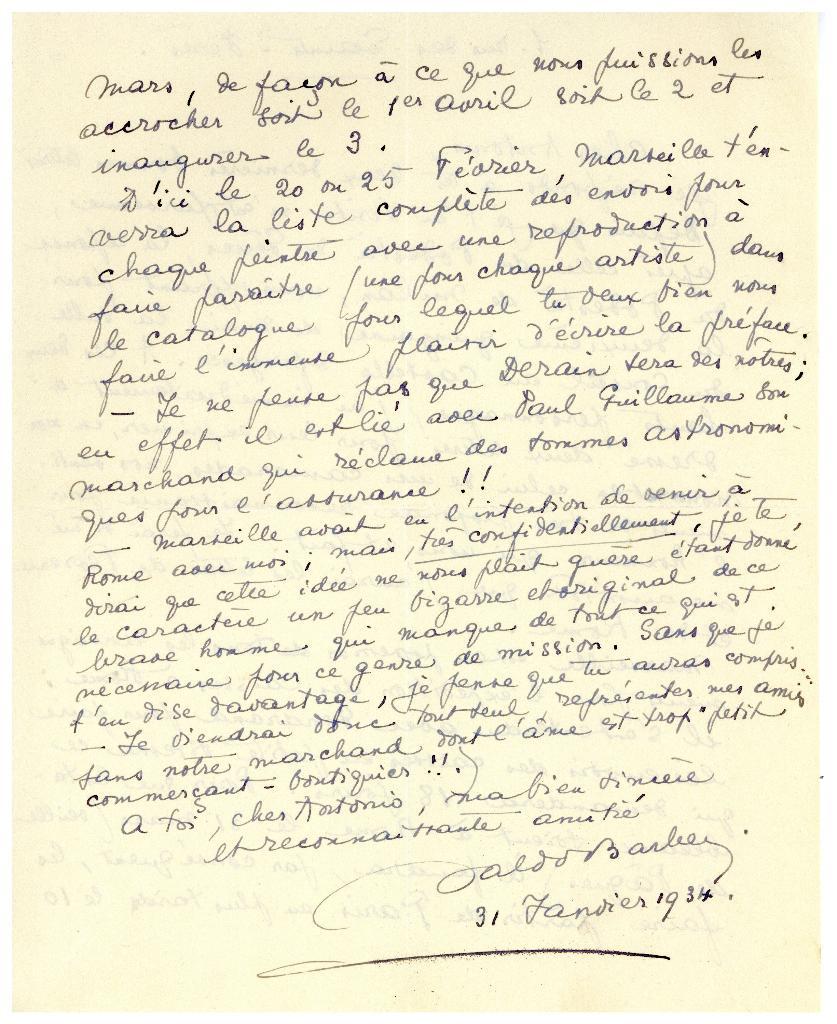 mars, de façon à ce que nous puissions les
accrocher soit le 1er avril soit le 2 et
inaugurer le 3.
D'ici le 20 ou 25 Février, Marseille t'en-
verra la liste complète des envois pour
chaque peintre avec une reproduction à
faire paraître (une pour chaque artiste) dans
le catalogue pour lequel tu veux bien nous
faire l'immense plaisir d'écrire la préface.
— Je ne pense pas que Derain sera des nôtres;
en effet il est lié avec Paul Guillaume son
marchand qui réclame des sommes astronomi-
ques pour l'assurance!!
— Marseille avait eu l'intention de venir à
Rome avec moi; mais, très confidentiellement, je te
dirai que cette idée ne nous plaît guère étant donné
le caractère un peu bizarre et original de ce
brave homme qui manque de tout ce qui est
nécessaire pour ce genre de mission. Sans que je
t'en dise davantage, je pense que tu auras compris.
— Je viendrai donc tout seul, représenter mes amis
sans notre marchand dont l'âme est trop "petit
commerçant-boutiquier"!!!
A toi, cher Antonio, ma bien sincère
et reconnaissante amitié.
31 Janvier 1934.